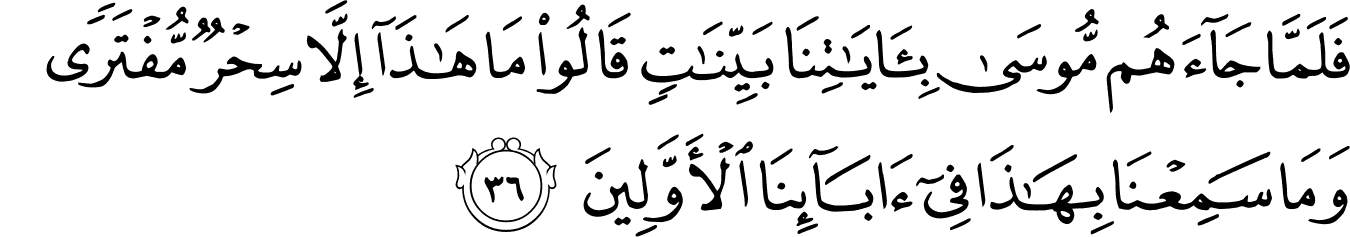 فَلَمَّا جَآءَهُم مُّوسَىٰ بِـَٔايَـٰتِنَا بَيِّنَـٰتٍ قَالُوا۟ مَا هَـٰذَآ إِلَّا سِحْرٌ مُّفْتَرًى
وَمَا سَمِعْنَا بِهَـٰذَا فِىٓ ءَابَآئِنَا ٱلْأَوَّلِينَ ٣٦